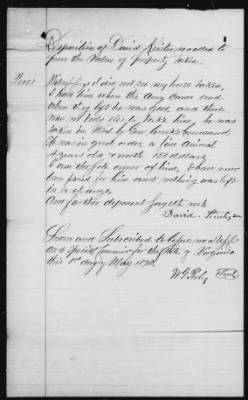 Deposition of David Kiester recalled to
prove the Value of property taken.
Deces Witness, I did not see my horse taken,
I had him when the Army came and
when they left he was gone, and there
was no body else to take him, he was
taken in 1864 by Gen Hunter's Command
He was in good order, a fine animal
4 years old, & worth 150 dollars
I am the sole owner of him, & have never
been paid for him and nothing was left
in exchange.
And further deponent sayeth not
David Kiester
Sworn and Subscribed to before me a
and Special Commr for the State of Virginia
this 1st day of May 187
W G Riley